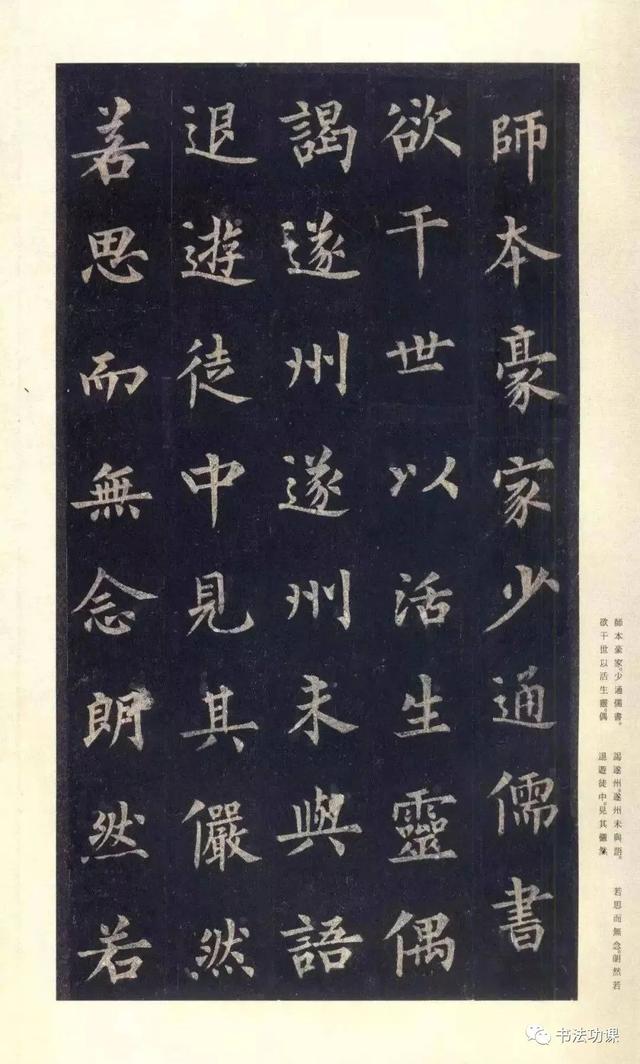 師本豪家少通儒書
欲干世以活生靈偶
謁遂州遂州未與語
退遊徒中見其儼然
若思而無念朗然若
師本豪家。少通儒書。
欲干世以活生靈。偶
謁遂州。遂州未與語。
退遊徒中。見其儼然
若思而無念。朗然若
书法功课